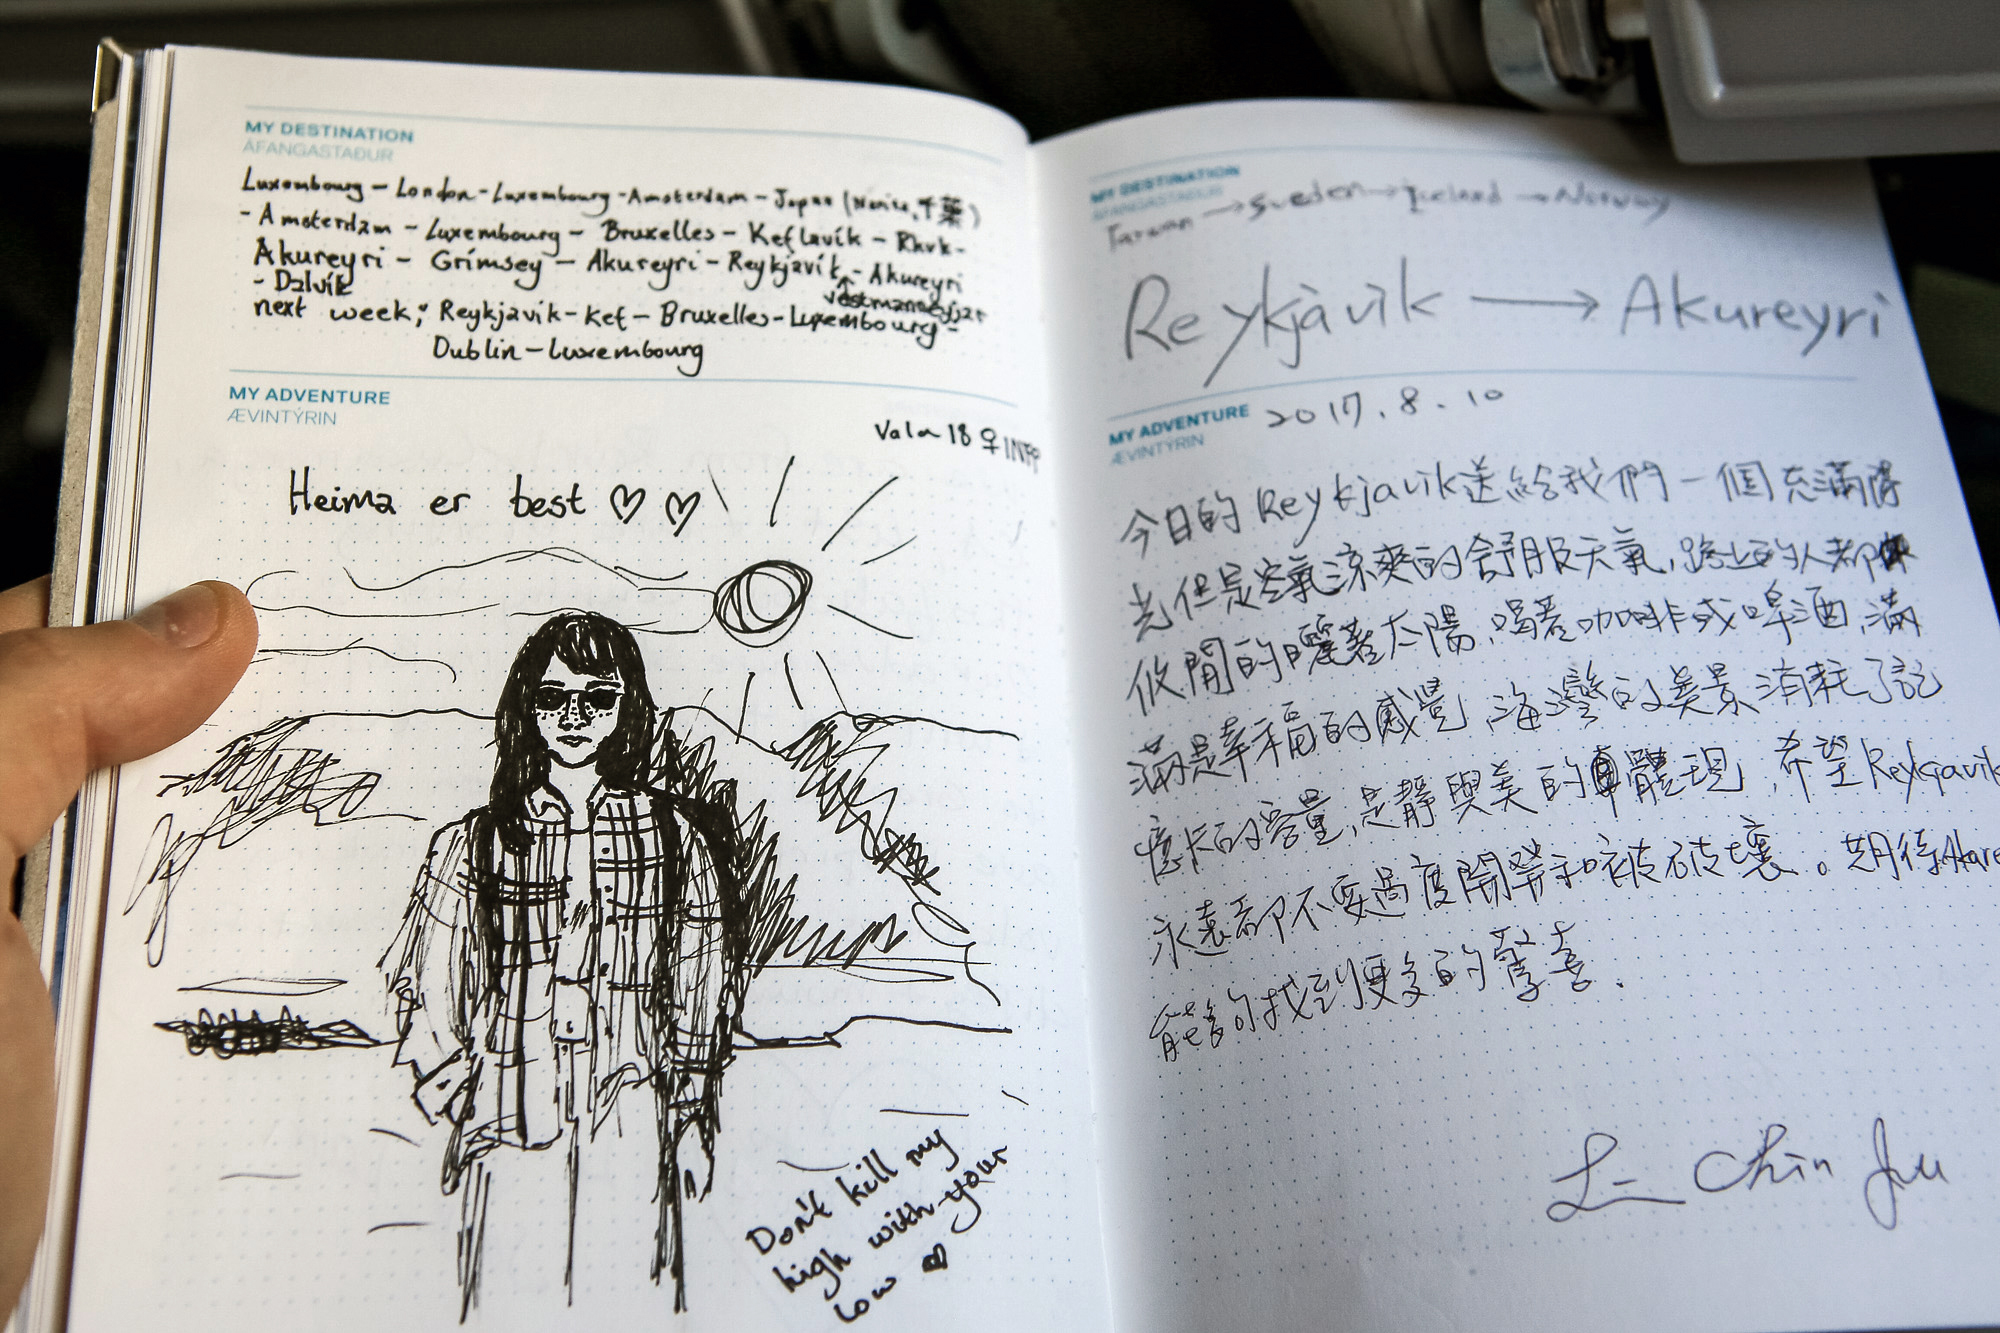 MY DESTINATION
ÁFANGASTAÐUR
Luxembourg – London – Luxembourg – Amsterdam – Japan (Narita, 千葉)
– Amsterdam – Luxembourg – Bruxelles – Keflavík – Rkvk –
Akureyri – Grímsey – Akureyri – Reykjavík – Akureyri
– Dalvík
vestmannaeyjar
next week: Reykjavík – Kef – Bruxelles – Luxembourg –
Dublin – Luxembourg
MY ADVENTURE
ÆVINTÝRIN
Vala 18 ♀ INFP
Heima er best ♡ ♡
Don't kill my
high with your
low
MY DESTINATION
ÁFANGASTAÐUR
Taiwan → Sweden → Iceland → Norway
Reykjàvìk → Akureyri
MY ADVENTURE
ÆVINTÝRIN
2017.8.10
今日的Reykjavik送給我們一個充滿陽
光但是空氣涼爽的舒服天氣,路上的人都
攸閒的曬著太陽,喝著咖啡或啤酒,滿
滿是幸福的感覺,海灣的美景消耗了記
憶卡的容量,是靜與美的體現,希望Reykjavik
永遠都不要過度開發和被破壞。期待Akure
能夠找到更多的驚喜.
Chin